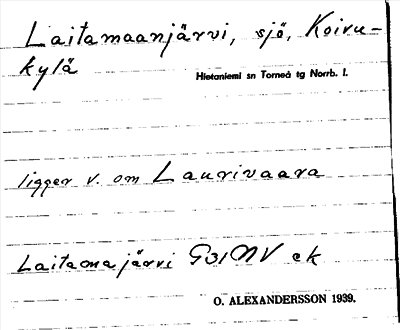 Laitamaanjärvi, sjö, Koivu-
kylä
Hietaniemi sn Torneå tg Norrb. l.
ligger v. om Laurivaara
Laitaomajärvi G31NV ek
O. ALEXANDERSSON 1939.